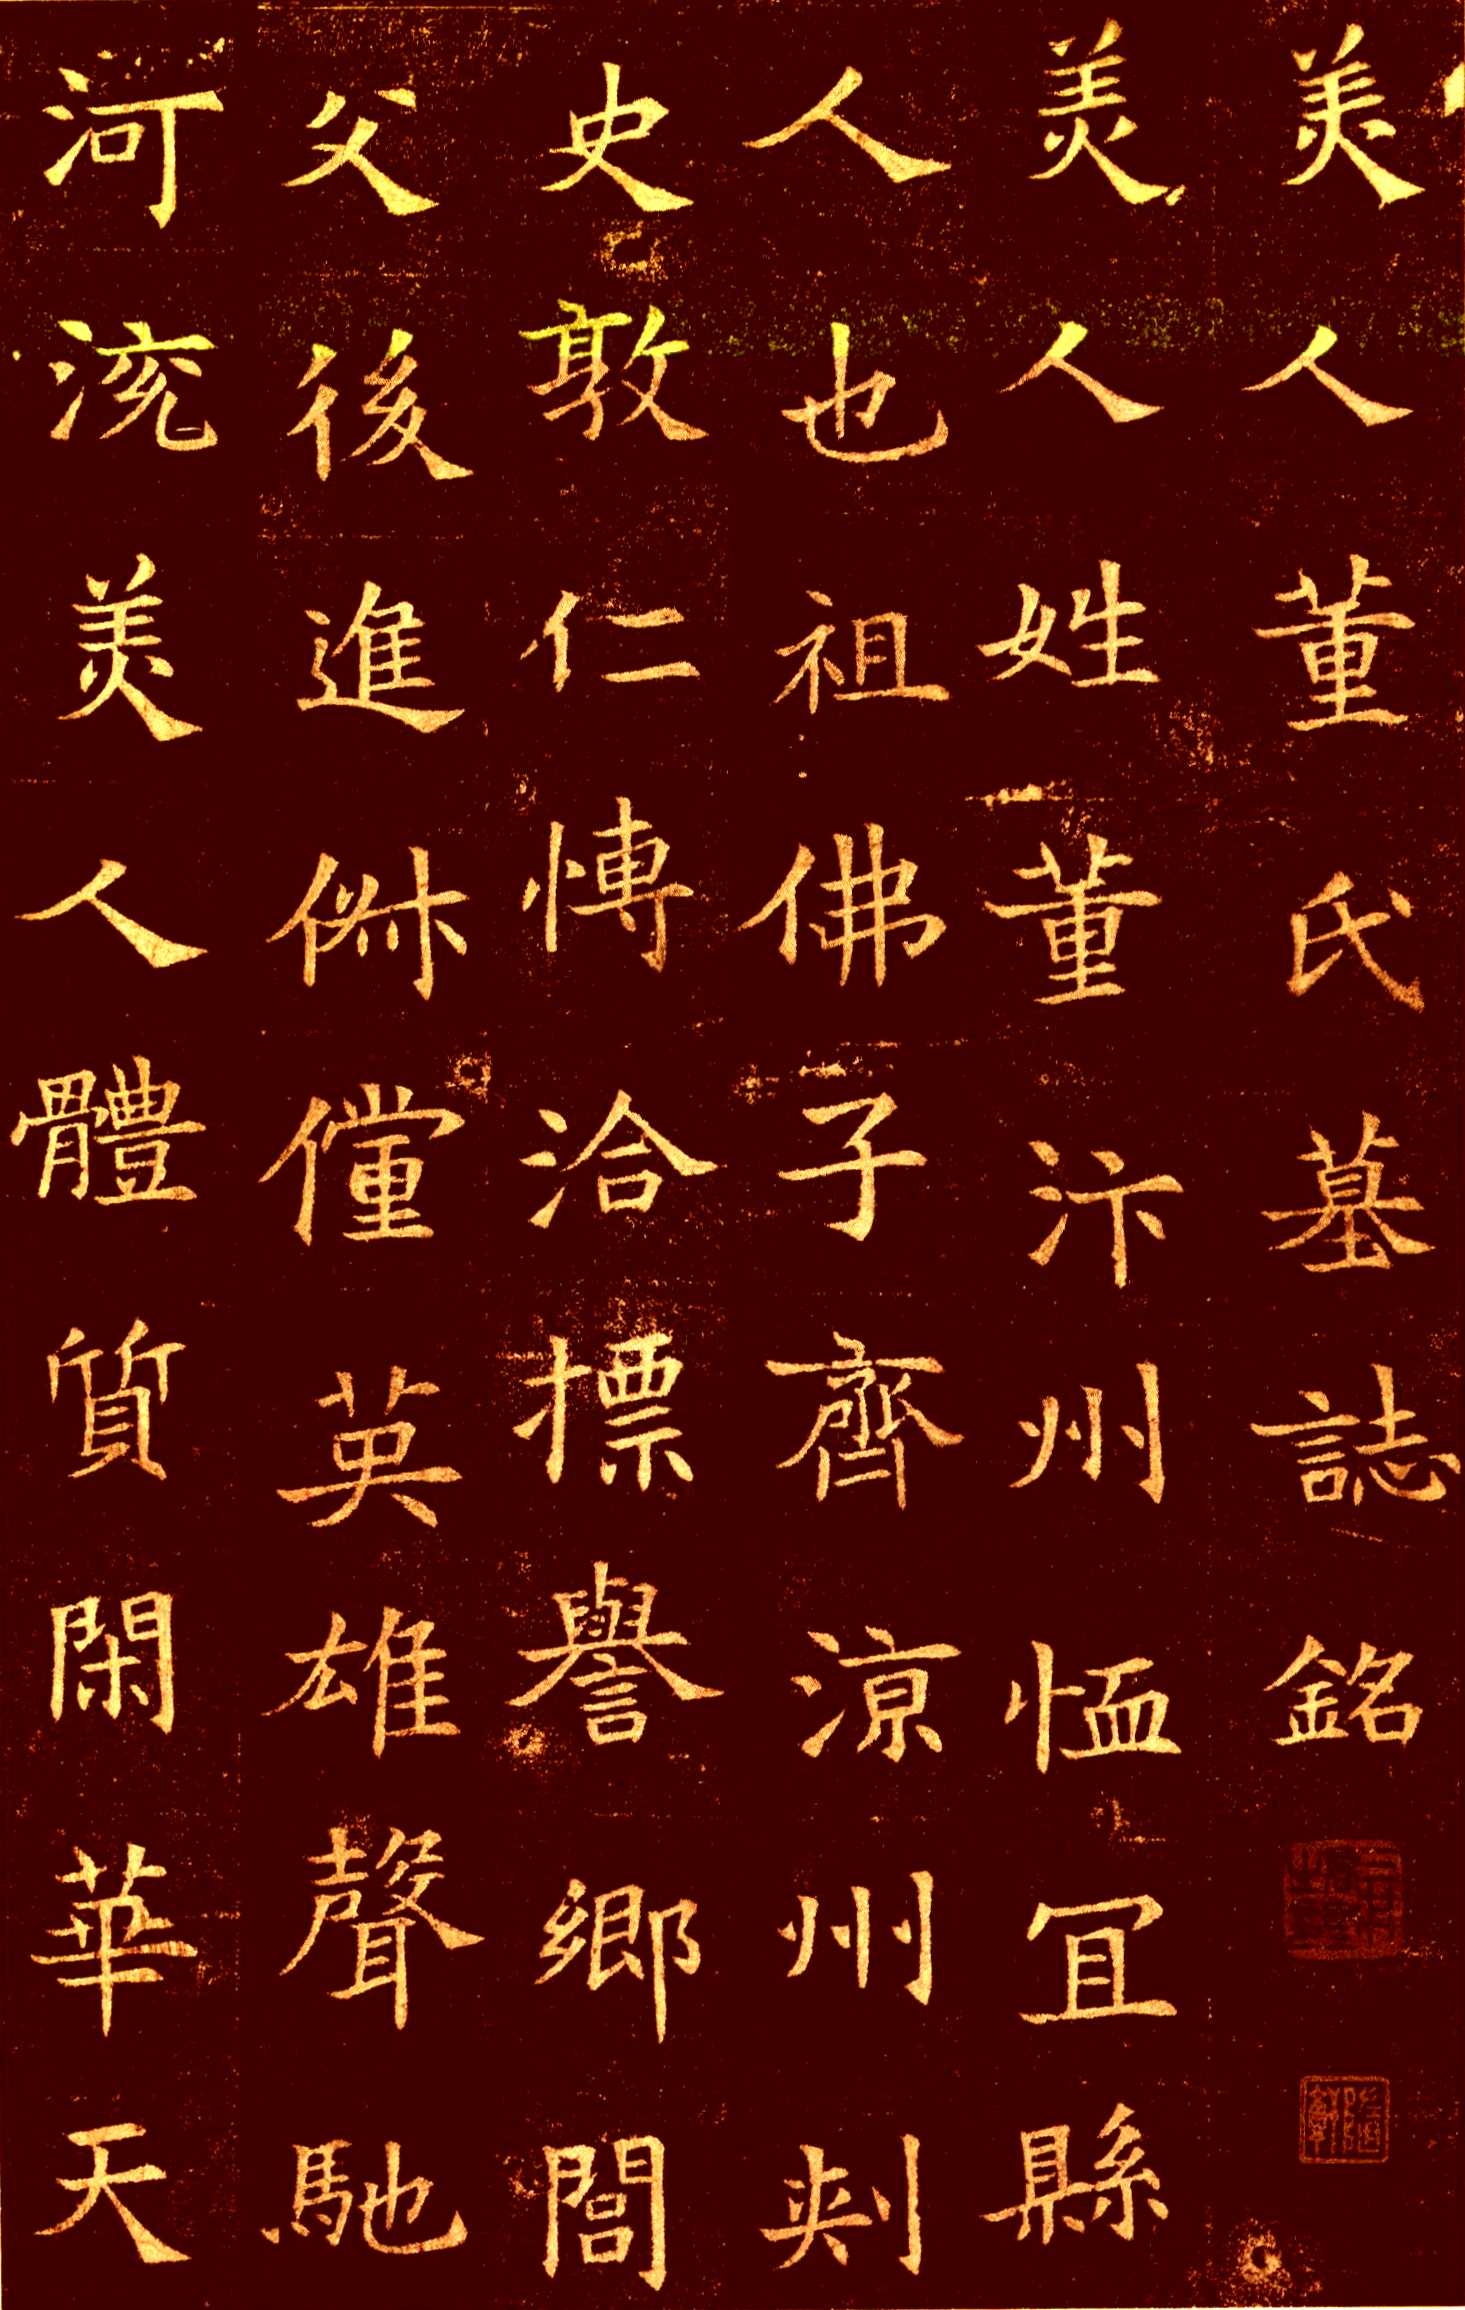 美人董氏墓誌銘
美人姓董汴州恤宜縣
人也祖佛子齊涼州刺
史敦仁博洽標譽鄉閭
父後進俶儻英雄聲馳
河流美人體質閑華天